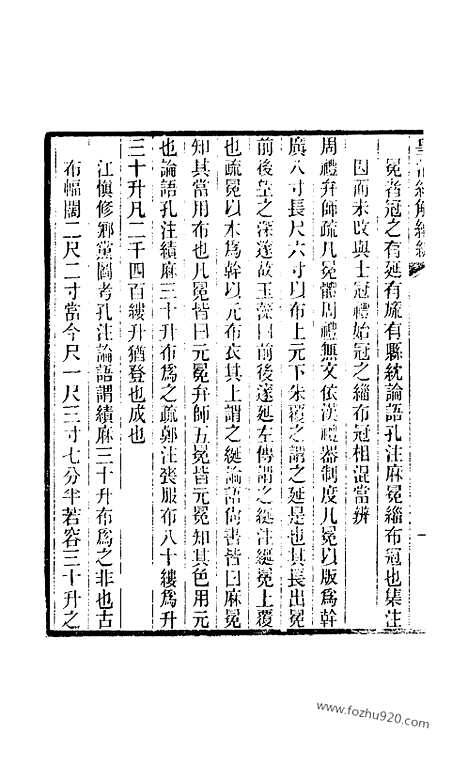 皇清經解續編
冕者冠之有延有旒有縣紞論語孔注麻冕緇布冠也集注
因而未改與士冠禮始冠之緇布冠相混當辨
周禮弁師疏凡冕體周禮無文依漢禮器制度凡冕以版為幹
廣八寸長尺六寸以布上元下朱覆之謂之延是也其長出冕
前後垂之深邃故玉藻曰前後邃延左傳謂之綖注綖冕上覆
也疏冕以木為幹以元布衣其上謂之綖論語尚書皆曰麻冕
知其當用布也凡冕皆曰元冕弁師五冕皆元冕知其色用元
也論語孔注績麻三十升布為之疏鄭注喪服布八十縷為升
三十升凡二千四百縷升猶登也成也
江慎修鄉黨圖考孔注論語謂績麻三十升布為之非也古
布幅闊二尺二寸當今尺一尺三寸七分半若容三十升之
www.fozhu920.com